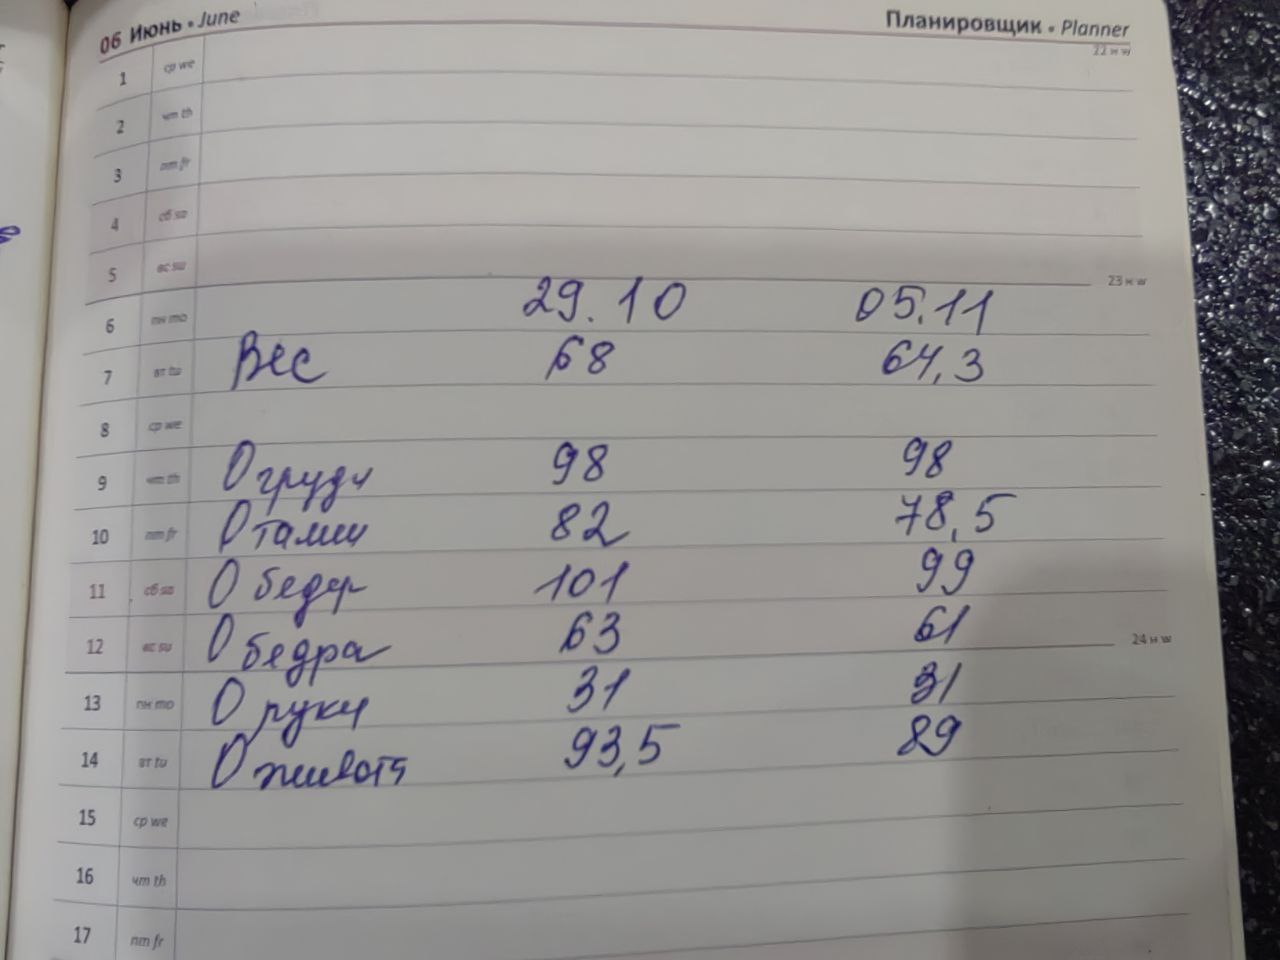 06 Июнь • June Планировщик • Planner
22 н w
1 ср we
2 чт th
3 пт fr
4 сб sa
5 вс su
23 н w
6 пн mo 29.10 05.11
7 вт tu Вес 68 64,3
8 ср we
9 чт th О груди 98 98
10 пт fr О талии 82 78,5
11 сб sa О бедер 101 99
12 вс su О бедра 63 61
24 н w
13 пн mo О руки 31 31
14 вт tu О живота 93,5 89
15 ср we
16 чт th
17 пт fr